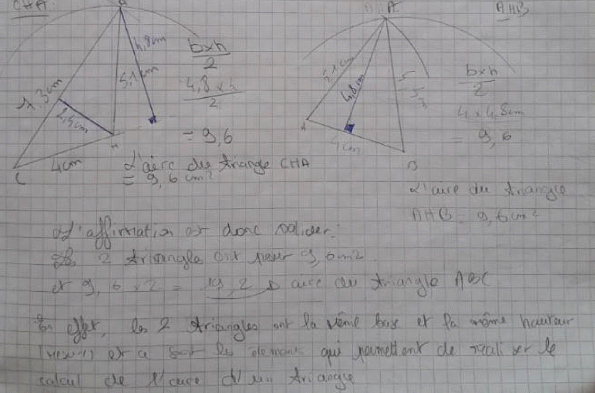 CHA
AHB
A
A
7,3cm
5,1cm
4,8cm
2,5cm
4cm
H
C
b x h
2
4,8 x 4
2
= 9,6
L'aire du triangle CHA
= 9,6 cm²
5,1cm
4,8cm
4cm
B
b x h
2
4 x 4,8cm
= 9,6
L'aire du triangle
AHB = 9,6cm²
L'affirmation est donc valider.
2 triangle ont pour 9,6m2
et 9,6 x 2 = 19,2 aire du triangle ABC
En effet, les 2 triangles ont la même base et la même hauteur
et a sont les qui permettent de realiser le
calcul de l'aire d'un triangle